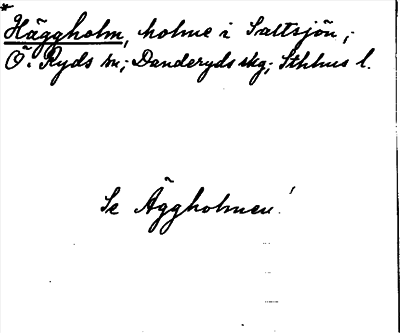 *
Häggholm, holme i Saltsjön,
Ö. Ryds sn; Danderyds skg; Sthlms l.
Se Äggholmen!